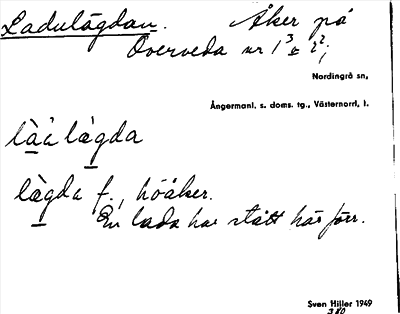 Ladulägdan. Åker på
Överveda nr 1³ & 2²,
Nordingrå sn,
Ångermanl. s. doms. tg., Västernorrl. l.
làà làgda
làgda f., höåker.
En lada har stått här förr.
Sven Hiller 1949
380